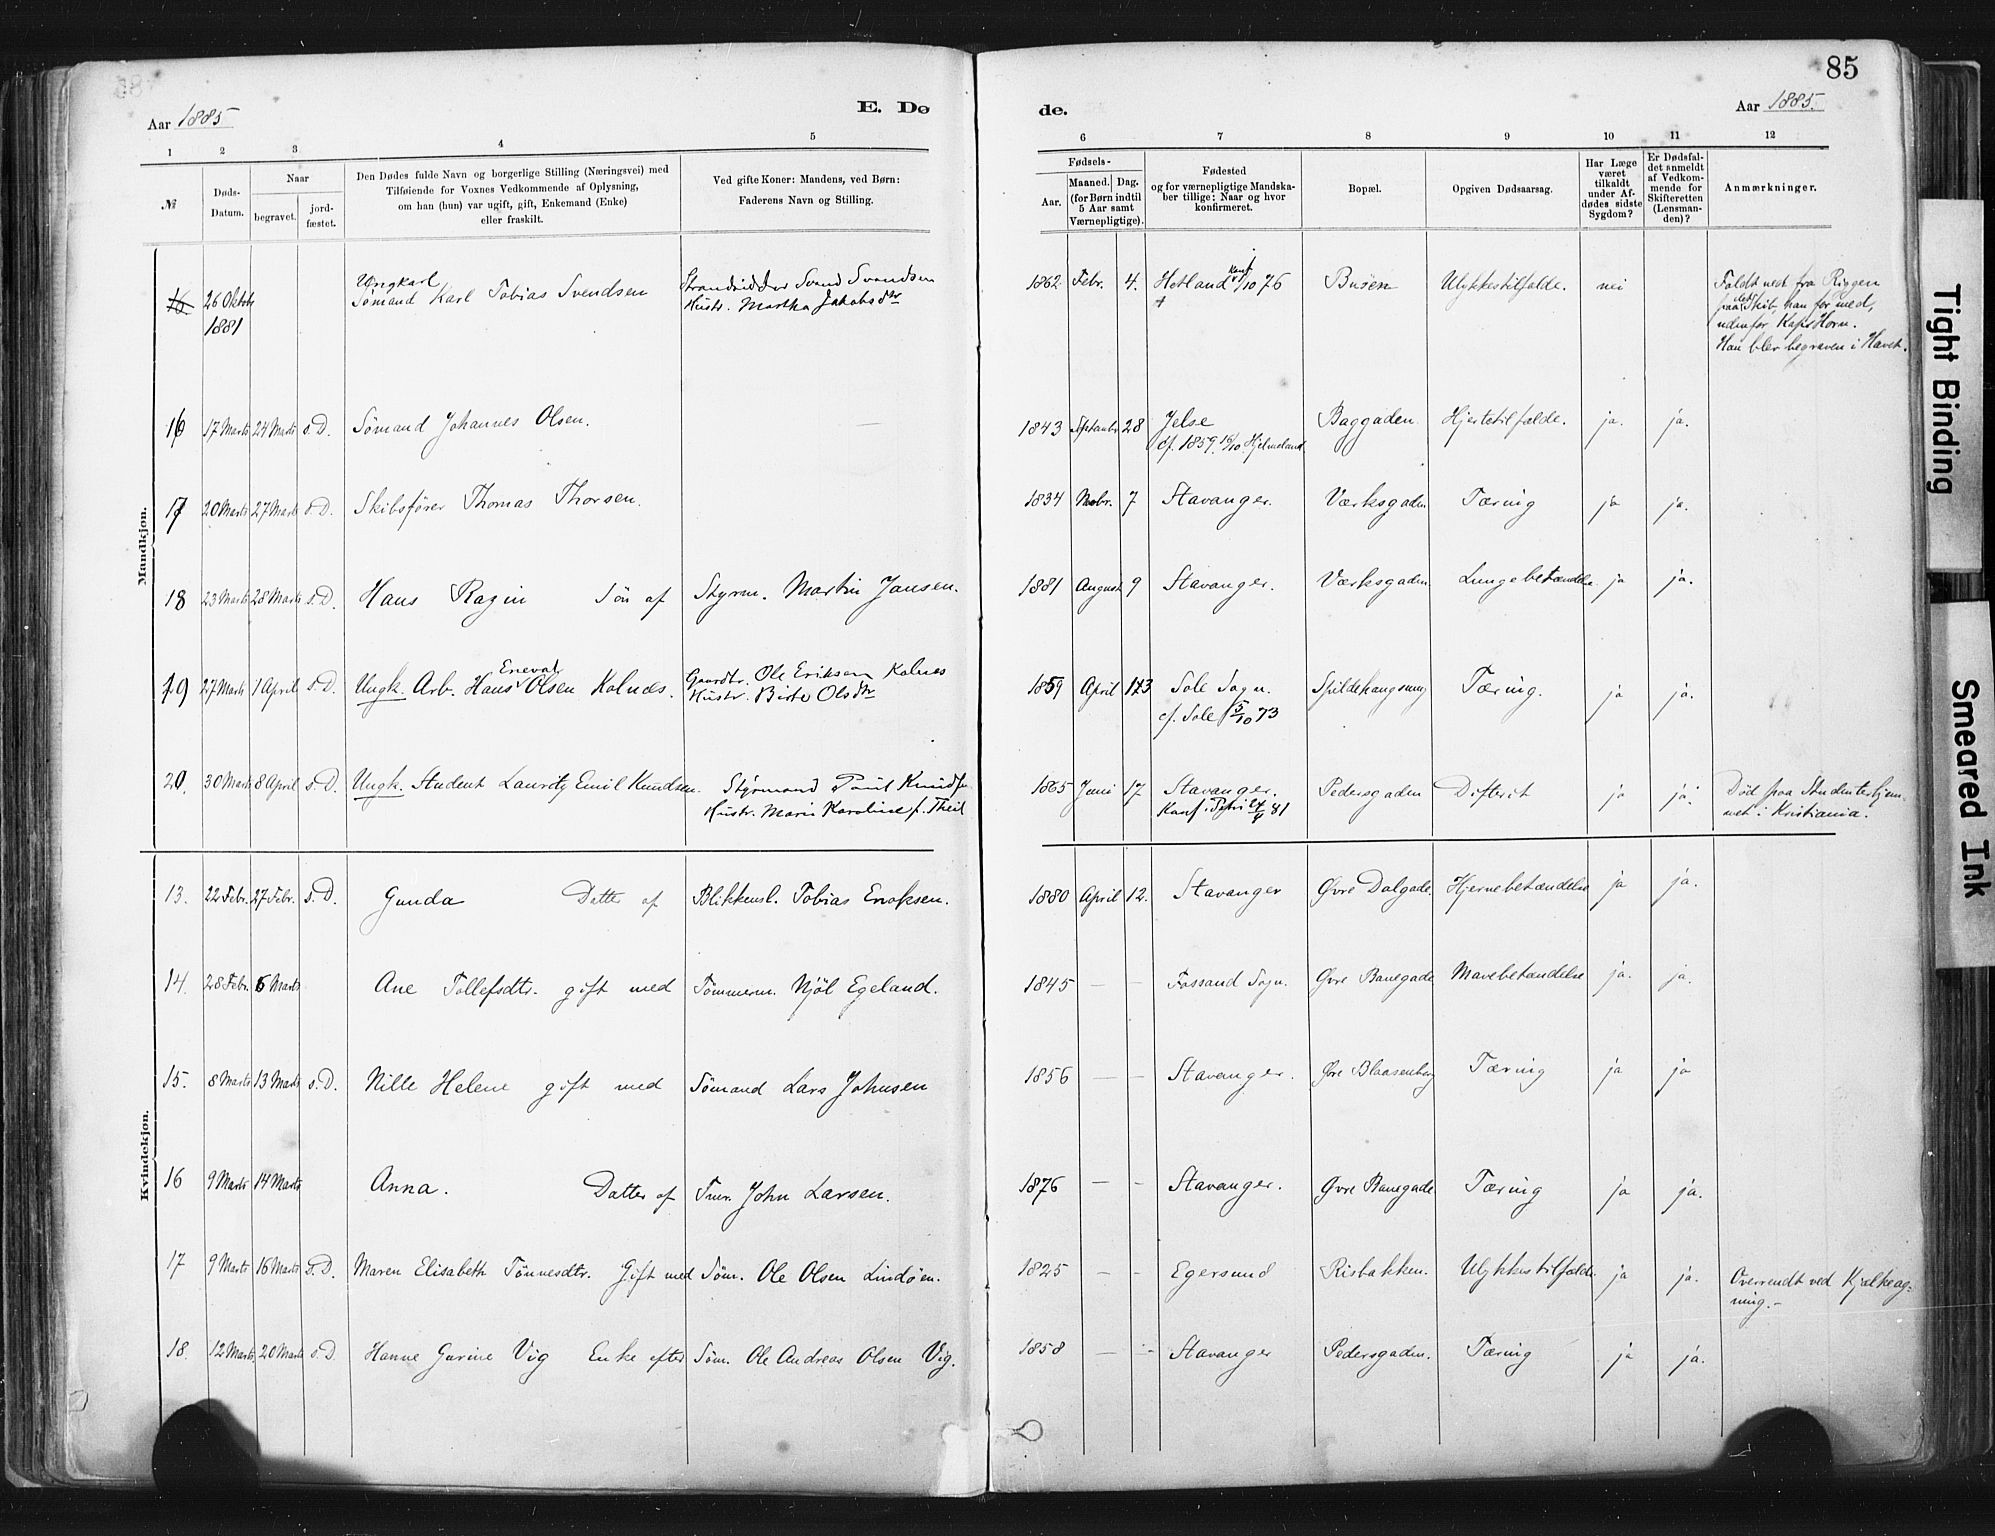 85
Aar 1885
E. Dø
de.
Aar 1885.
1 2 3 4 5 6 7 8 9 10 11 12
№
Døds-
Datum.
Naar
begravet.
jord-
fæstet.
Den Dødes fulde Navn og borgerlige Stilling (Næringsvei) med
Tilføiende for Voxnes Vedkommende af Oplysning,
om han (hun) var ugift, gift, Enkemand (Enke)
eller fraskilt.
Ved gifte Koner: Mandens, ved Børn:
Faderens Navn og Stilling.
Fødsels-
Aar.
Maaned. Dag.
(for Børn indtil
5 Aar samt
Værnepligtige).
Fødested
og for værnepligtige Mandska-
ber tillige: Naar og hvor
konfirmeret.
Bopæl.
Opgiven Dødsaarsag.
Har Læge
været
tilkaldt
under Af-
dødes sidste
Sygdom?
Er Dødsfal-
det anmeldt
af Vedkom-
mende for
Skifteretten
(Lensman-
den)?
Anmærkninger.
Mandkjøn.
16 26 Oktbr
1881
Ungkarl
Sømand Karl Tobias Svendsen
Strandsidder Svend Svendsen
Hustr. Martha Jakobsdtr
1862 Febr. 4. Hetland Konf 1/10 76 Busøen Ulykkestilfælde. nei
Faldt ned fra Riggen
paa det Skib, han for med,
udenfor Kap Horn.
Han blev begraven i Havet.
16 17 Marts 24 Marts s.D. Sømand Johannes Olsen.
1843 Septembr 28 Jelse Baggaden. Hjertetilfælde. ja. ja.
cf. 1859 16/10 Hjelmeland
17 20 Marts 27 Marts s.D. Skibsfører Thomas Thorsen.
1834 Nobr. 7 Stavanger. Værksgaden Tæring ja ja.
18 23 Marts 28 Marts s.D. Hans Ragin Søn af Styrm. Martin Jansen.
1881 August 9 Stavanger. Værksgaden Lungebetændelse ja ja.
19 27 Marts 1 April s.D. Ungk. Arb. Hans Eneval Olsen Kolnes.
Gaardbr. Ole Eriksen Kolnes
Hustr. Birte Olsdtr
1859 April 13 Sole Sogn. Spildehaugsung Tæring. ja ja.
cf. Sole 5/10 73
20. 30 Marts 8 April s.D. Ungk. Student Lauritz Emil Knudsen.
Styrmand Poul Knudsen
Hustr. Maria Karoline f. Theil
1865 Juni 17 Stavanger. Pedersgaden Difterit ja ja.
Konf. i Petri 81
Død paa Studenterhjem-
met i Kristiania.
Kvindekjøn.
13. 22 Febr. 27 Febr. s.D. Gunda Datter af Blikkensl. Tobias Enoksen.
1880 April 12. Stavanger Øvre Dalgade. Hjernebetændelse ja ja.
14. 28 Febr. 6 Marts Ane Tollefsdtr. gift med Tømmerm. Njøl Egeland.
1845 — — Fossand Sogn. Øvre Banegade Mavebetændelse ja. ja.
15. 8 Marts 13 Marts s.D. Nille Helene gift med Sømand Lars Johnsen
1856 — — Stavanger. Øvre Blaasenborg Tæring ja ja
16 9 Marts 14 Marts Anna. Datter af Tmr. John Larsen.
1876 — — Stavanger. Øvre Banegade Tæring ja ja.
17 9 Marts 16 Marts s.D. Maren Elisabeth Tønnesdtr. Gift med Søm. Ole Olsen Lindøen.
1825 — — Egersund Risbakken. Ulykkestilfælde ja ja.
Overrendt ved Kjælkeag-
ning.-
18. 12 Marts 20 Marts s.D. Hanne Gurine Vig Enke efter Søm. Ole Andreas Olsen Vig.
1858 — — Stavanger Pedersgaden. Tæring ja ja.
Tight Binding
Smeared Ink